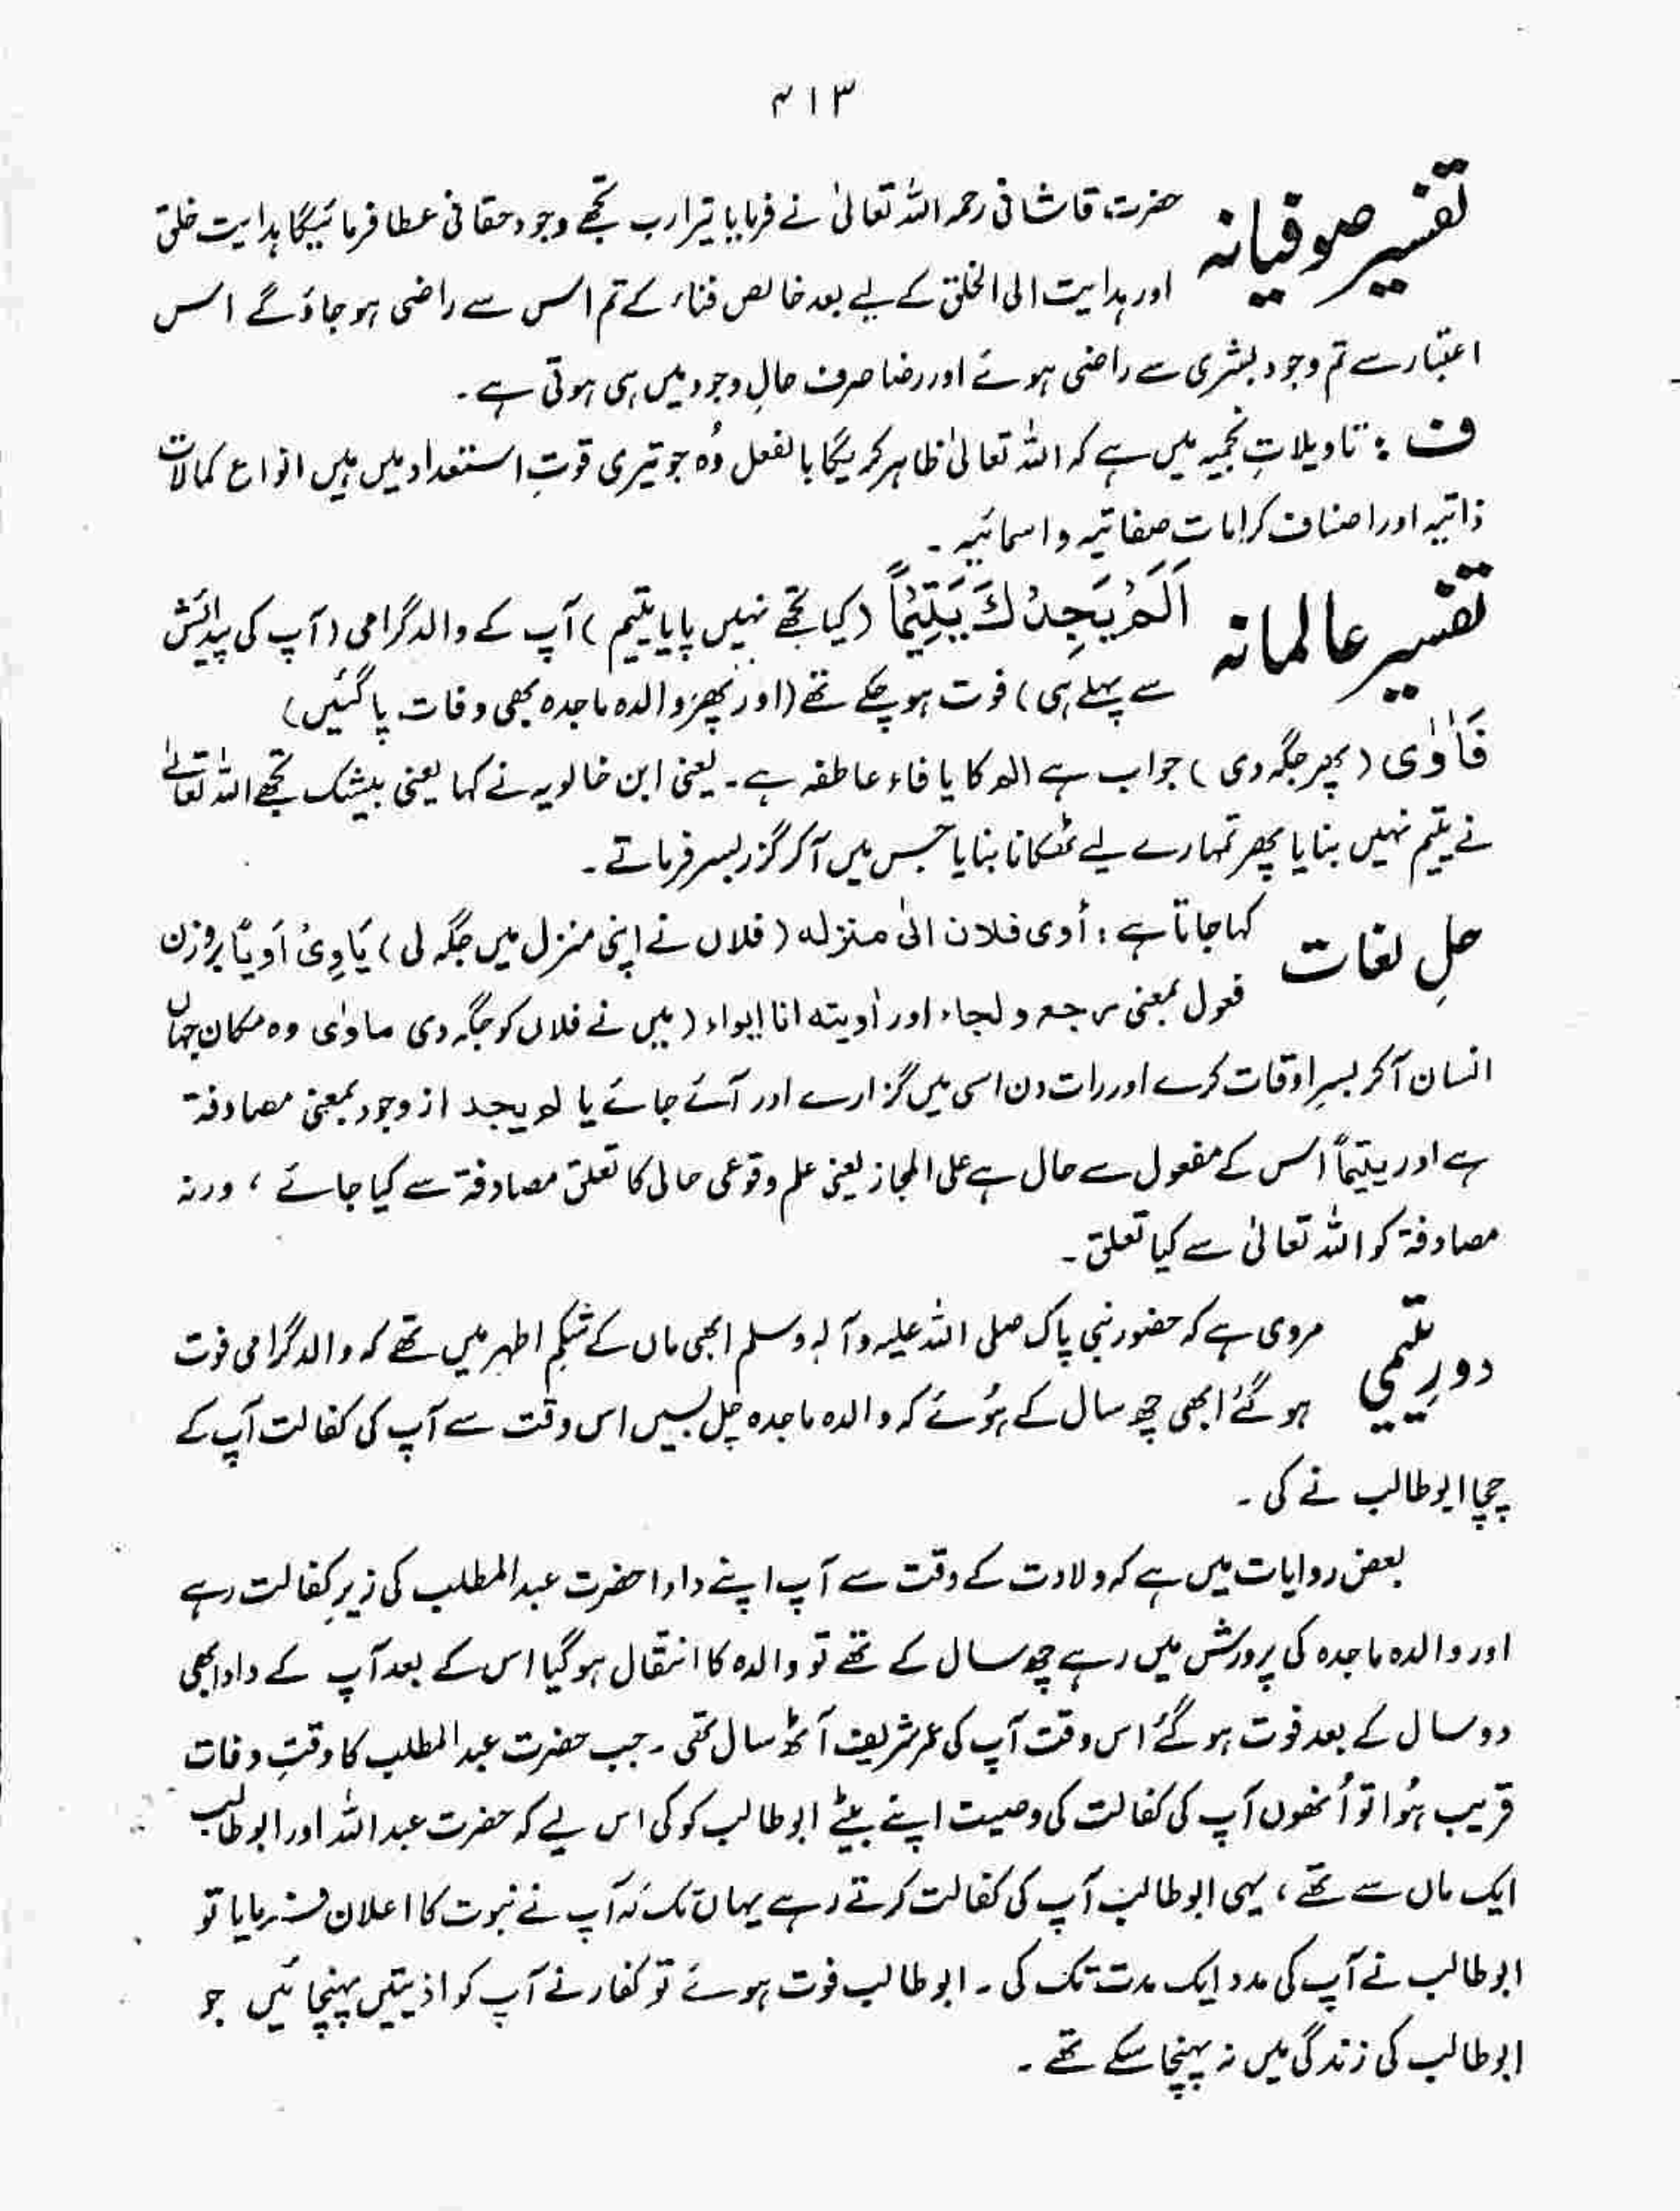 ۴۱۳
تفسیر صوفیانہ حضرت قاشانی رحمہ اللہ تعالیٰ نے فرمایا تیرا رب تجھے وجود حقانی عطا فرمائیگا ہدایت خلق
اور ہدایت الی الخلق کے لیے بعد خالص فناء کے تم اس سے راضی ہو جاؤ گے اس
اعتبار سے تم وجود بشری سے راضی ہوئے اور رضا صرف حالِ وجود میں ہی ہوتی ہے۔
ف : تاویلاتِ نجمیہ میں ہے کہ اللہ تعالیٰ ظاہر کریگا بالفعل وُہ جو تیری قوتِ استعداد میں ہیں انواع کمالات
ذاتیہ اور اصناف کراماتِ صفاتیہ و اسمائیہ۔
تفسیر عالمانہ اَلَمْ یَجِدْكَ یَتِیْمًا (کیا تجھے نہیں پایا یتیم) آپ کے والد گرامی (آپ کی پیدائش
سے پہلے ہی) فوت ہو چکے تھے (اور پھر والدہ ماجدہ بھی وفات پا گئیں)
فَاٰوٰی (پھر جگہ دی) جواب ہے الم کا یا فاء عاطفہ ہے۔ یعنی ابن خالویہ نے کہا یعنی بیشک تجھے اللہ تعالےٰ
نے یتیم نہیں بنایا پھر تمہارے لیے ٹھکانا بنایا جس میں آکر گزر بسر فرماتے۔
حلِ لغات کہا جاتا ہے : أوی فلان الیٰ منزلہ (فلاں نے اپنی منزل میں جگہ لی) یَاوِیْ اَوِیًا بروزن
فعول بمعنی رجع و لجاء اور اٰویتہ انا ایواء (میں نے فلاں کو جگہ دی ماوٰی وہ مکان جہاں
انسان آکر بسرِ اوقات کرے اور رات دن اسی میں گزارے اور آئے جائے یا لم یجد از وجود بمعنی مصادفۃ
ہے اور یتیماً اس کے مفعول سے حال ہے علی المجاز یعنی علم وقوعی حالی کا تعلق مصادفۃ سے کیا جائے ، ورنہ
مصادفۃ کو اللہ تعالیٰ سے کیا تعلق۔
دورِ یتیمی مروی ہے کہ حضور نبی پاک صلی اللہ علیہ وآلہ وسلم ابھی ماں کے شکمِ اطہر میں تھے کہ والد گرامی فوت
ہو گئے ابھی چھ سال کے ہُوئے کہ والدہ ماجدہ چل بسیں اس وقت سے آپ کی کفالت آپ کے
چچا ابوطالب نے کی۔
بعض روایات میں ہے کہ ولادت کے وقت سے آپ اپنے دادا حضرت عبدالمطلب کی زیرِ کفالت رہے
اور والدہ ماجدہ کی پرورش میں رہے چھ سال کے تھے تو والدہ کا انتقال ہوگیا اس کے بعد آپ کے دادا بھی
دو سال کے بعد فوت ہو گئے اس وقت آپ کی عمر شریف آٹھ سال تھی۔ جب حضرت عبدالمطلب کا وقتِ وفات
قریب ہُوا تو اُنھوں آپ کی کفالت کی وصیت اپنے بیٹے ابوطالب کو کی اس لیے کہ حضرت عبداللہ اور ابوطالب
ایک ماں سے تھے ، یہی ابوطالب آپ کی کفالت کرتے رہے یہاں تک کہ آپ نے نبوت کا اعلان فرمایا تو
ابوطالب نے آپ کی مدد ایک مدت تک کی۔ ابوطالب فوت ہوئے تو کفار نے آپ کو اذیتیں پہنچائیں جو
ابوطالب کی زندگی میں نہ پہنچا سکے تھے۔